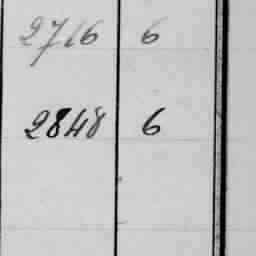 2716 6
2848 6